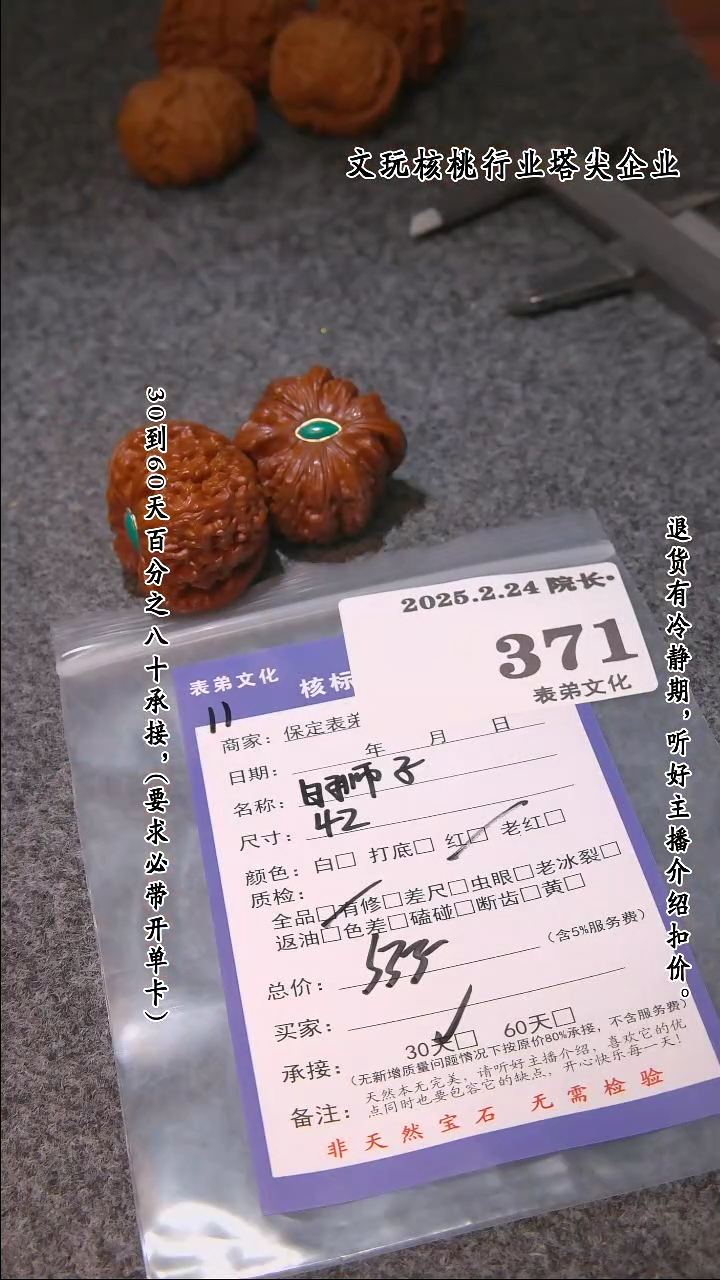 文玩核桃行业塔尖企业
30到60天百分之八十承接，(要求必带开单卡)
退货有冷静期，听好主播介绍扣价。
2025.2.24 院长·
371
表弟文化
表弟文化 核标
11
商家：保定表弟
日期： 年 月 日
名称：白狮子
尺寸：42
颜色：白□ 打底□ 红□ 老红□
质检：
全品□有修□差尺□虫眼□老冰裂□
返油□色差□磕碰□断齿□黄□
总价： (含5%服务费)
买家：
承接： 30天□ 60天□
(无新增质量问题情况下按原价80%承接，不含服务费)
备注：天然本无完美，请听好主播介绍，喜欢它的优
点同时也要包容它的缺点，开心快乐每一天！
非天然宝石 无需检验